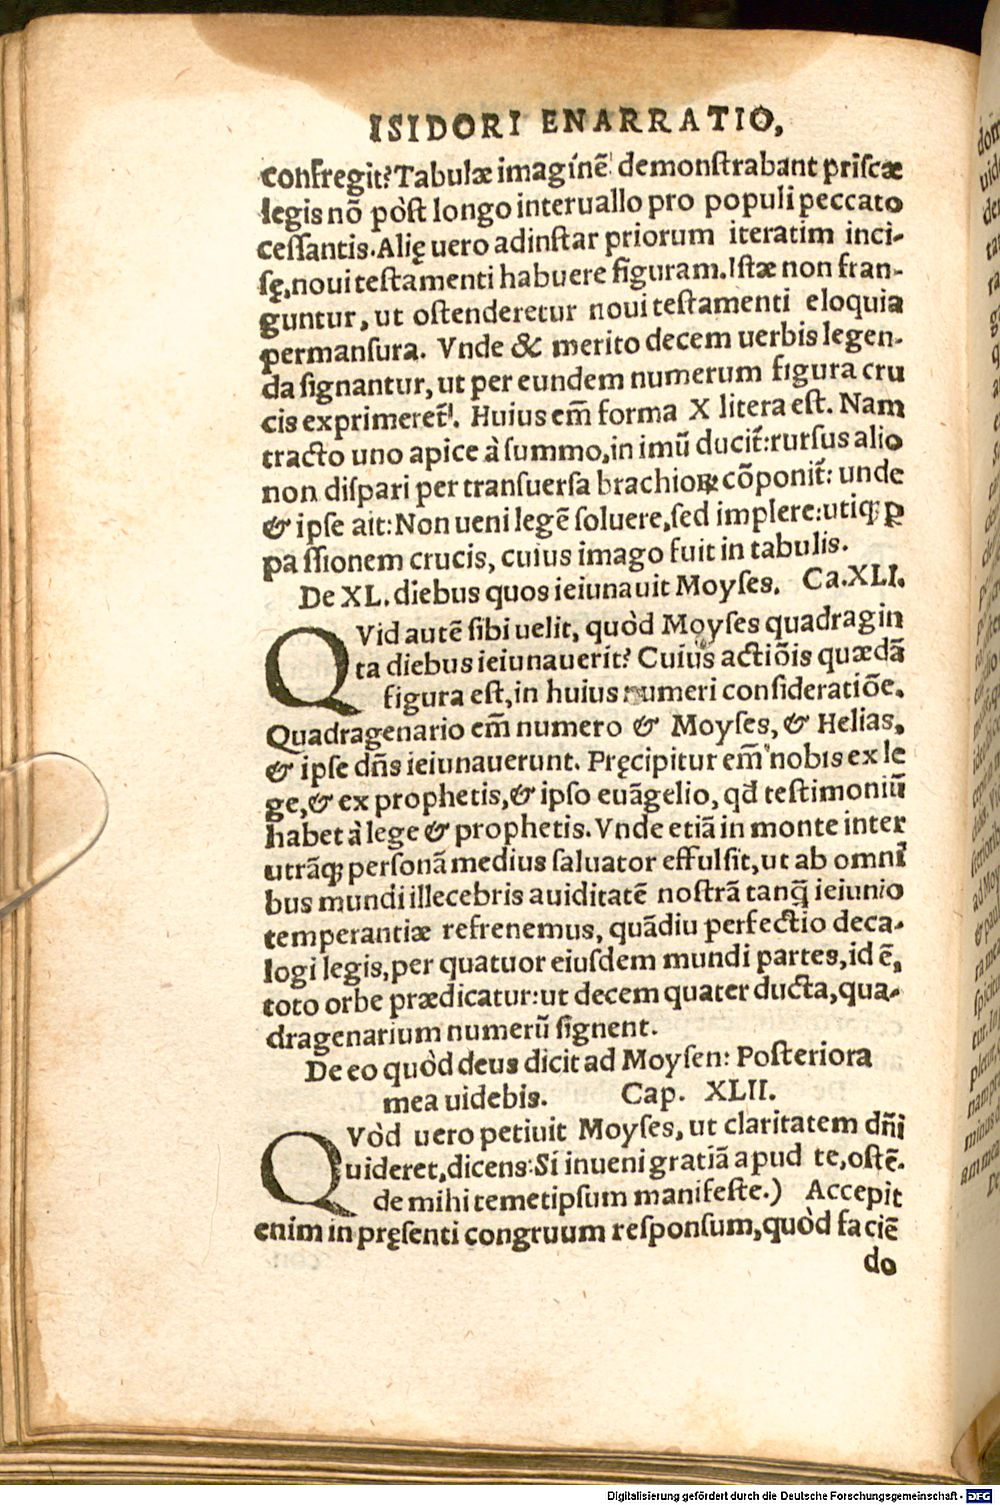 ISIDORI ENARRATIO,
confregit? Tabulæ imaginẽ demonſtrabant priſcæ
legis nõ pòſt longo interuallo pro populi peccato
ceſſantis. Alię uero adinſtar priorum iteratim inci-
ſę, noui teſtamenti habuere figuram. Iſtæ non fran-
guntur, ut oſtenderetur noui teſtamenti eloquia
permanſura. Vnde & merito decem uerbis legen-
da ſignantur, ut per eundem numerum figura cru
cis exprimeret̃. Huius em̃ forma X litera eſt. Nam
tracto uno apice à ſummo, in imũ ducit̃: rurſus alio
non diſpari per tranſuerſa brachioꝝ cõponit̃: unde
& ipſe ait: Non ueni legẽ ſoluere, ſed implere: utiqꝫ ꝑ
pa ſſionem crucis, cuius imago fuit in tabulis.
De XL. diebus quos ieiunauit Moyſes. Ca. XLI.
QVid autẽ ſibi uelit, quòd Moyſes quadragin
ta diebus ieiunauerit? Cuius actiõis quædã
figura eſt, in huius numeri conſideratiõe.
Quadragenario em̃ numero & Moyſes, & Helias,
& ipſe dñs ieiunauerunt. Pręcipitur em̃ nobis ex le
ge, & ex prophetis, & ipſo euãgelio, qd̃ teſtimoniũ
habet à lege & prophetis. Vnde etiã in monte inter
utrãqꝫ perſonã medius ſaluator effulſit, ut ab omni
bus mundi illecebris auiditatẽ noſtrã tanq̃ ieiunio
temperantiæ refrenemus, quãdiu perfectio deca-
logi legis, per quatuor eiuſdem mundi partes, id ẽ,
toto orbe prædicatur: ut decem quater ducta, qua-
dragenarium numerũ ſignent.
De eo quòd deus dicit ad Moyſen: Poſteriora
mea uidebis. Cap. XLII.
QVòd uero petiuit Moyſes, ut claritatem dñi
uideret, dicens: Si inueni gratiã apud te, oſtẽ-
de mihi temetipſum manifeſte.) Accepit
enim in pręſenti congruum reſponſum, quòd faciẽ
do
Digitalisierung gefördert durch die Deutsche Forschungsgemeinschaft - DFG